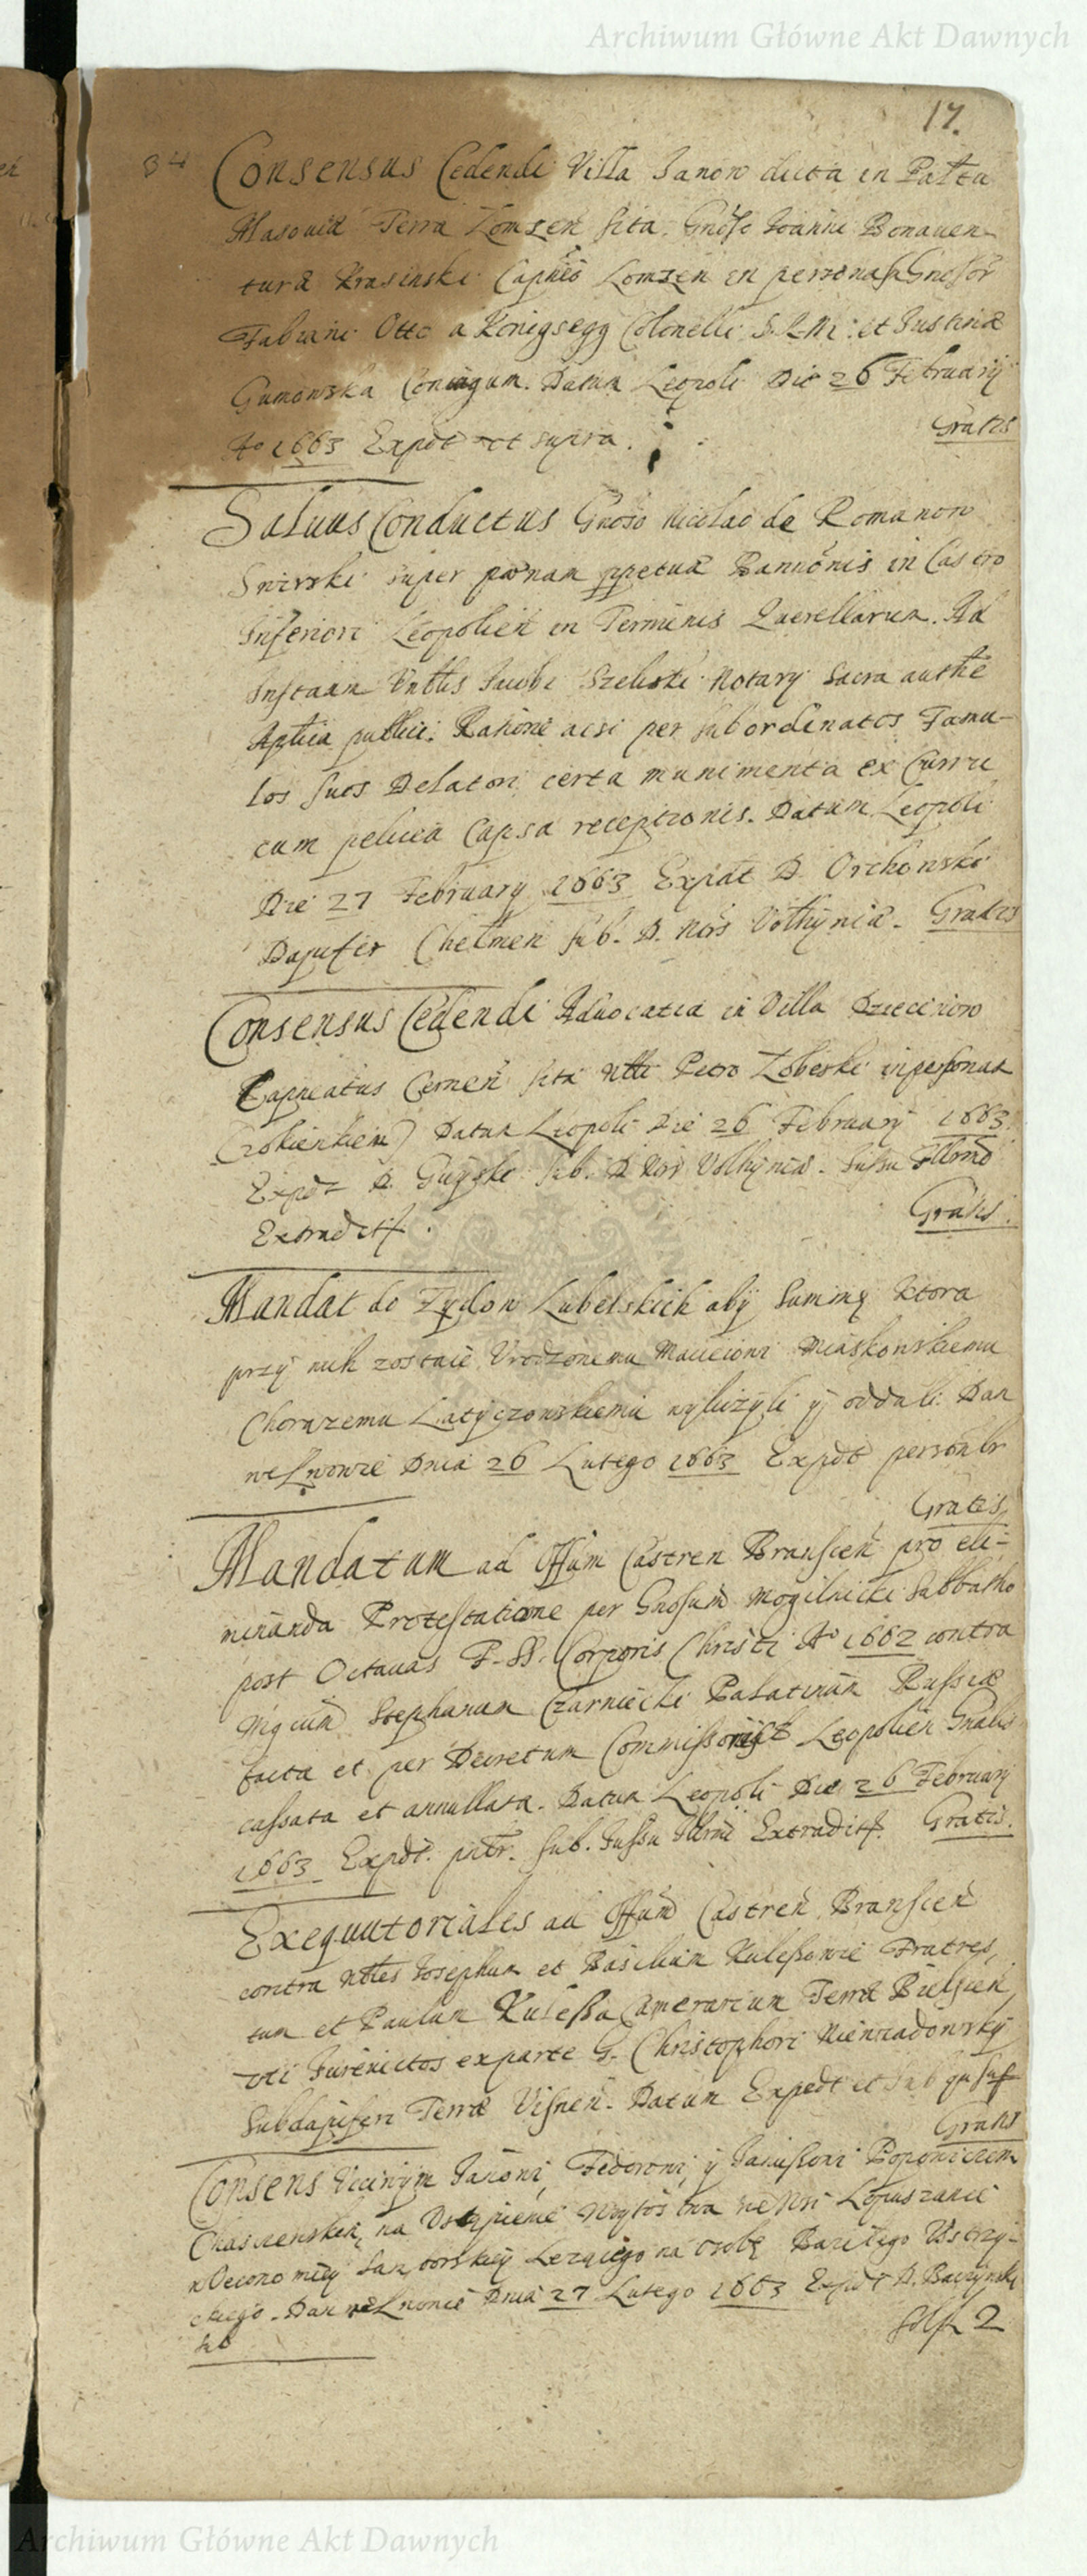 Archiwum Główne Akt Dawnych
17.
34 Consensus Cedendi Villa Janow dicta in Pałtu
Masoviæ Terra Łomzen sita. Gnoso Joanni Bonaven-
tura Krasinski Capneo Lomzen in personas Gnosor
Fabiani Otto a Konigsegg Colonelli S. R. M. et Justinæ
Gumowska Coniugum. Datum Leopoli Die 26 February
Ao 1663 Expdt ut supra.
Gratis
Salvus Conductus Gnoso Nicolao de Romanow
Swirski super pænam ppetuæ Bannonis in Castro
Inferiori Leopolien in Terminis Querellarum. Ad
Instaan Vnblis Jacobi Szeliski Notary Sacra authe
Aptica publici. Ratione acsi per subordinatos Famu-
los suos Delatori certa munimenta ex Curru
cum pelicea Capsa receptionis. Datum Leopoli
Die 27 February 1663 Expdt D. Orchowski
Dapifer Chelmen sub. D. Nois Volhyniæ. Gratis
Consensus Cedendi Advocatia in Villa Dzieciniow
Capneatus Cernen sita Nbli Petro Zobeski in personas
Czokienkien) Datum Leopoli Die 26 February 1663.
Expdt D. Guyski sub. D Nor Volhyniæ. Jussu Illrmi
Extraditf.
Gratis.
Mandat do Zydow Lubelskich aby Summę ktora
przy nich zostaie Vrodzonemu Macieiowi Miaskowskiemu
Chorazemu Latyczowskiemu wyliczyli y oddali. Dan
we Lwowie Dnia 26 Lutego 1663 Expdt personlr
Gratis
Mandatum ad Offum Castren Branscen pro eli-
minanda Protestatione per Gnosum Mogilnicki Sabbatho
post Octavas F. SS. Corporis Christi Ao 1662 contra
Mgcum Stephanum Czarniecki Palatinum Russiæ
facta et per Decretum Commissoriale Leopolien Gnalis
cassata et annullata. Datum Leopoli Die 26 February
1663 Expdt. pntr. sub. Jussu Illrmi Extraditf. Gratis.
Exequutoriales ad Offum Castren Branscen
contra Nbles Josephum et Basilium Kulessowie Fratres,
tum et Paulum Kulessa Camerarium Terræ Bielscen,
uti Iurevictos ex parte G. Christophori Niewiadowsky
Subdapiferi Terræ Visnen. Datum Expedt et sub qu sup
Gratis
Consens Vccziwym Janowi, Fedorowi, y Janussowi Popowiczom
na Vstąpienie Woytostwa we Wsi Lopuszance
w Oeconomiey Samborskiey Lezącego na Osobę Bazilego Vstrzy-
ckiego. Dan we Lwowie Dnia 27 Lutego 1663 Expdt D. Baczynski
sub
Solp 2
Archiwum Główne Akt Dawnych